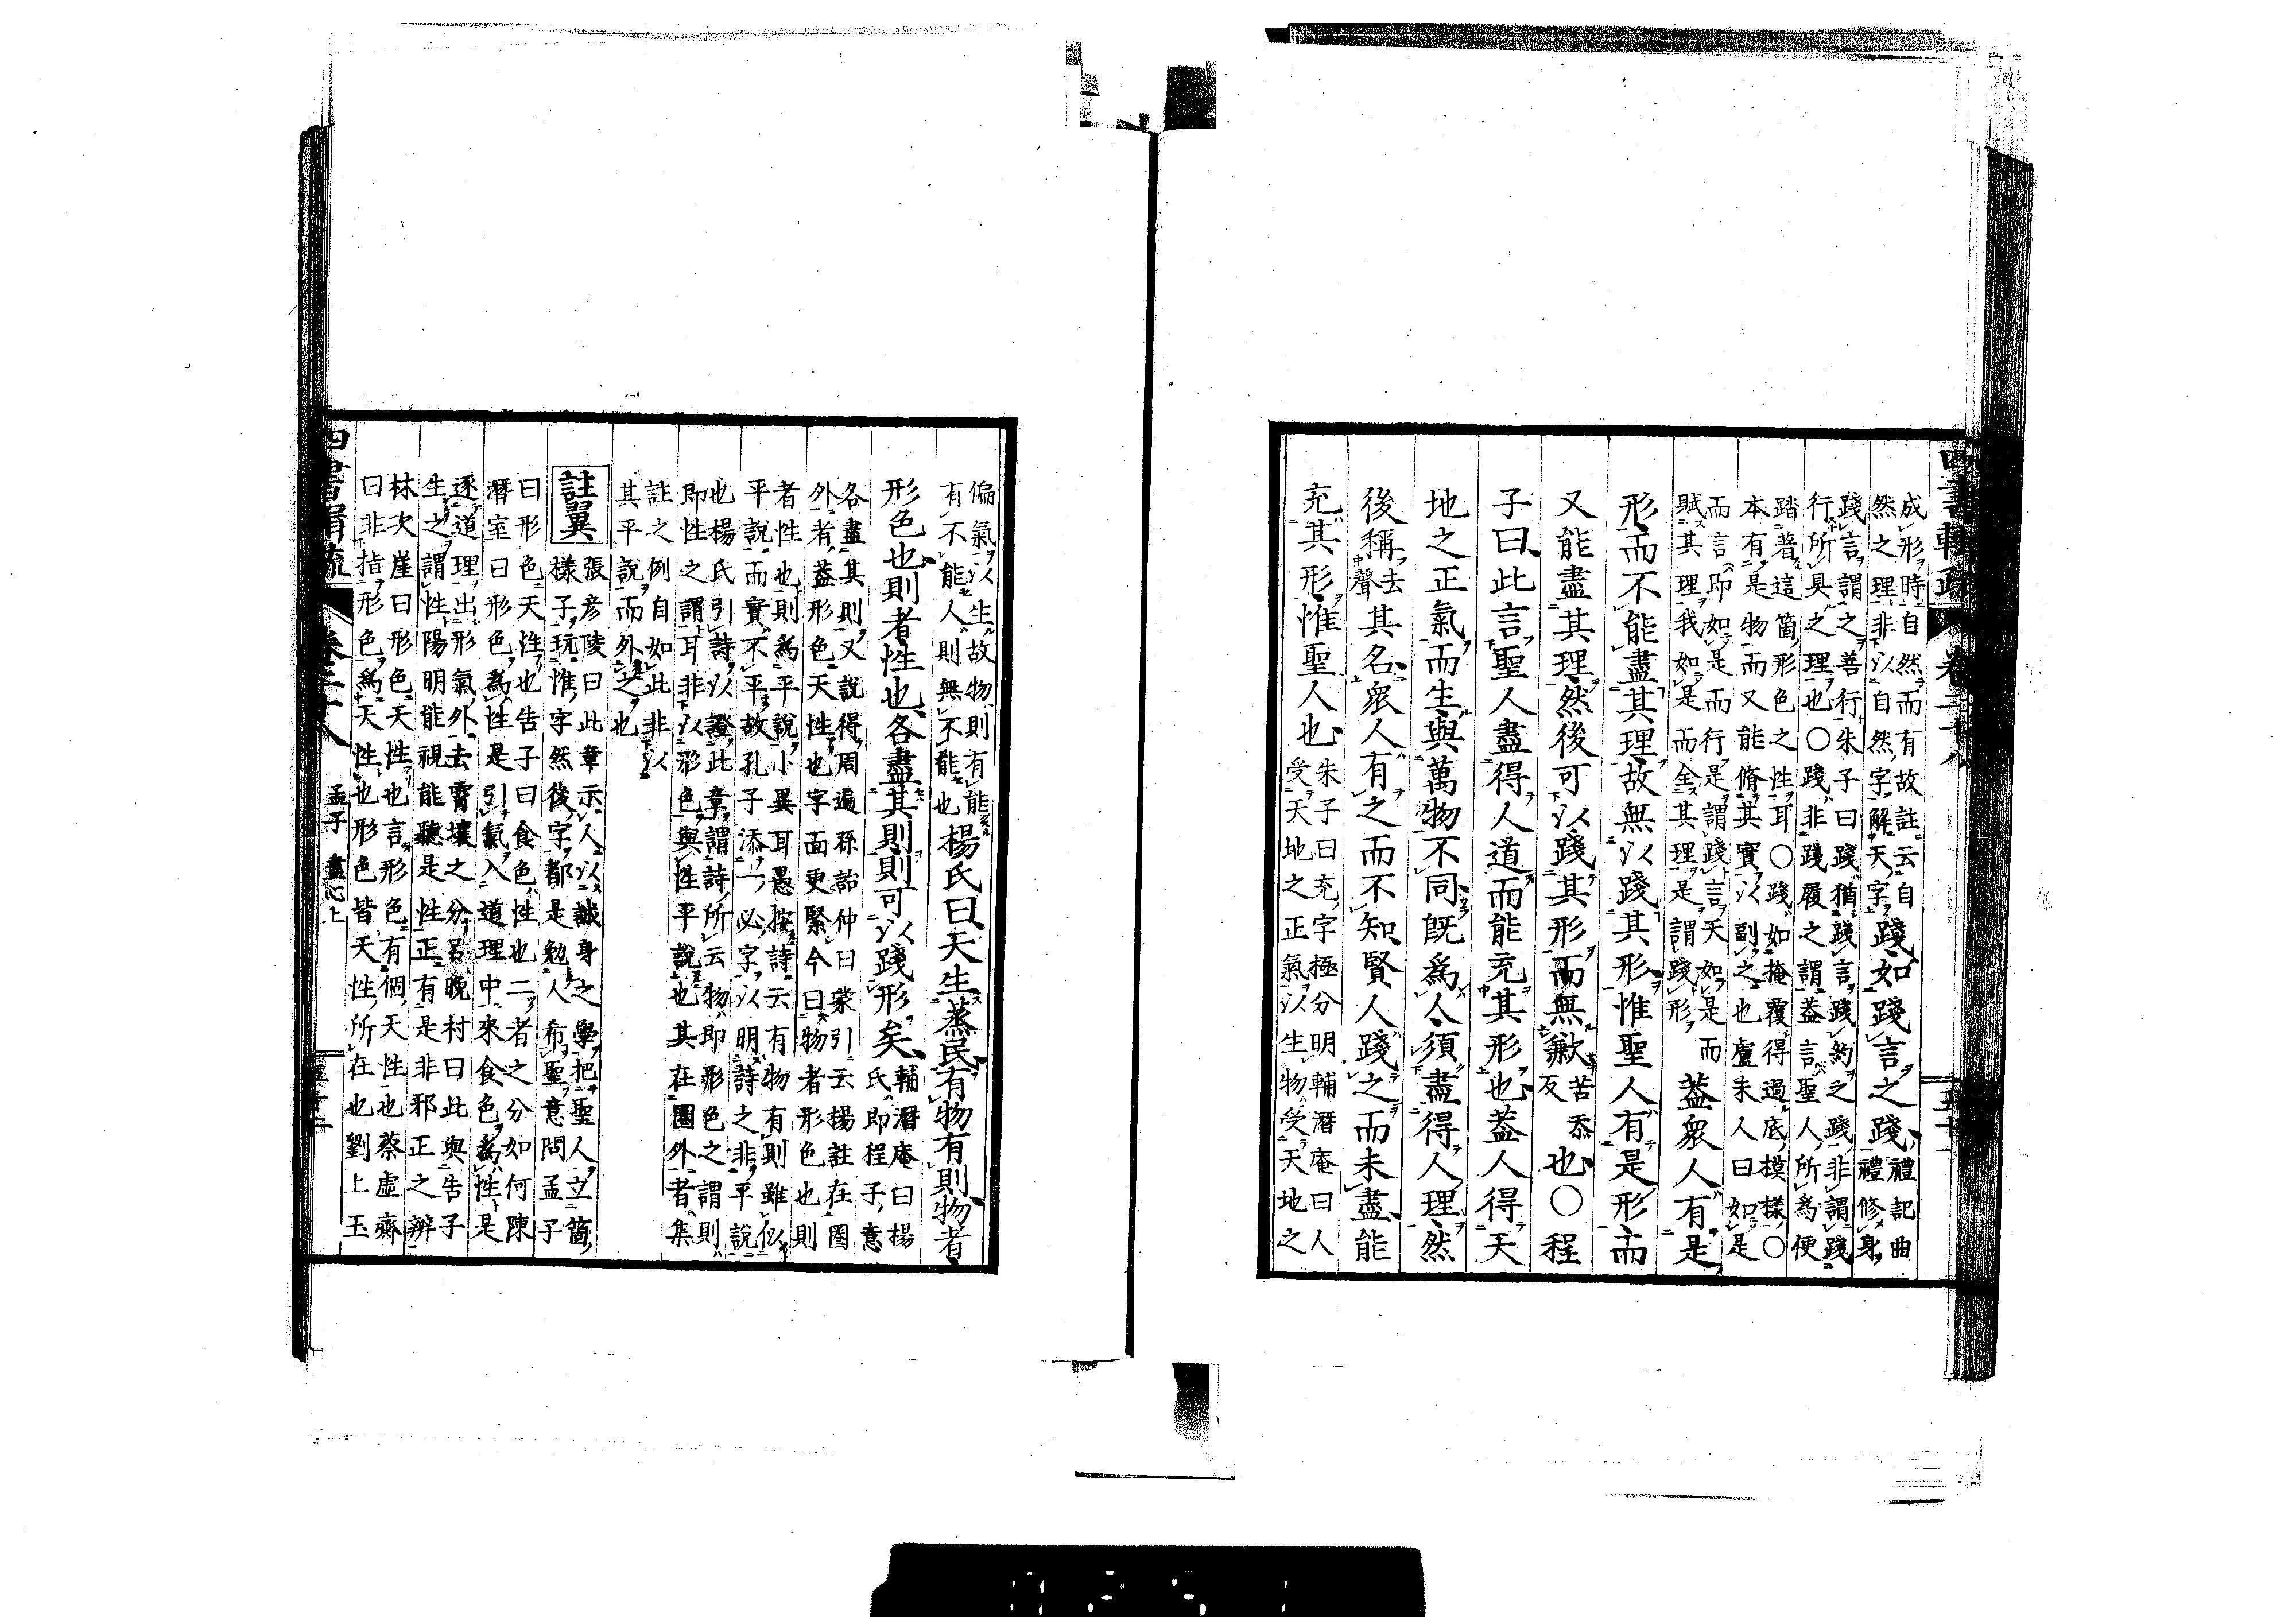 成形時自然而有故註云自
然之理非以自然字解天字
踐如踐言之踐
禮記曲
禮修身
踐言謂之善行朱子曰踐猶踐言踐約之踐非謂踐
行所具之理也○踐非踐履之謂蓋言聖人所爲便
踏著這箇形色之性耳○踐如掩覆得過底模樣○
本有是物而又能脩其實以副之也盧朱人曰如是
而言即如是而行是謂踐言天如是而
賦其理我如是而全其理是謂踐形
蓋衆人有是
形而不能盡其理故無以踐其形惟聖人有是形而
又能盡其理然後可以踐其形而無歉
苦忝
反
也○程
子曰此言聖人盡得人道而能充其形也蓋人得天
地之正氣而生與萬物不同既爲人須盡得人理然
後稱
去
聲
其名衆人有之而不知賢人踐之而未盡能
充其形惟聖人也
朱子曰充字極分明輔潛庵曰人
受天地之正氣以生物受天地之
偏氣以生故物則有能
有不能人則無不能也
楊氏曰天生蒸民有物有則物者
形色也則者性也各盡其則則可以踐形矣
輔潛庵曰楊
氏即程子意
各盡其則又說得周遍孫詒仲曰蒙引云楊註在圈
外者蓋形色天性也字面更緊今曰物者形色也則
者性也則爲平說小異耳愚按詩云有物有則雖似
平說而實不平故孔子添一必字以明詩之非平說
也楊氏引詩以證此章謂詩所云物即形色之謂則
即性之謂耳非以形色與性平說也其在圈外者集
註之例自如此非以
其平說而外之也
註翼
張彥陵曰此章示人以誠身之學把聖人立箇
樣子玩惟字然後字都是勉人希聖意問孟子
曰形色天性也告子曰食色性也二者之分如何陳
潛室曰形色爲性是引氣入道理中來食色爲性是
逐道理出形氣外去霄壤之分呂晚村曰此與告子
生之謂性陽明能視能聽是性正有是非邪正之辨
林次崖曰形色天性也言形色有個天性也蔡虛齋
曰非指形色爲天性也形色皆天性所在也劉上玉
孟子 盡心上